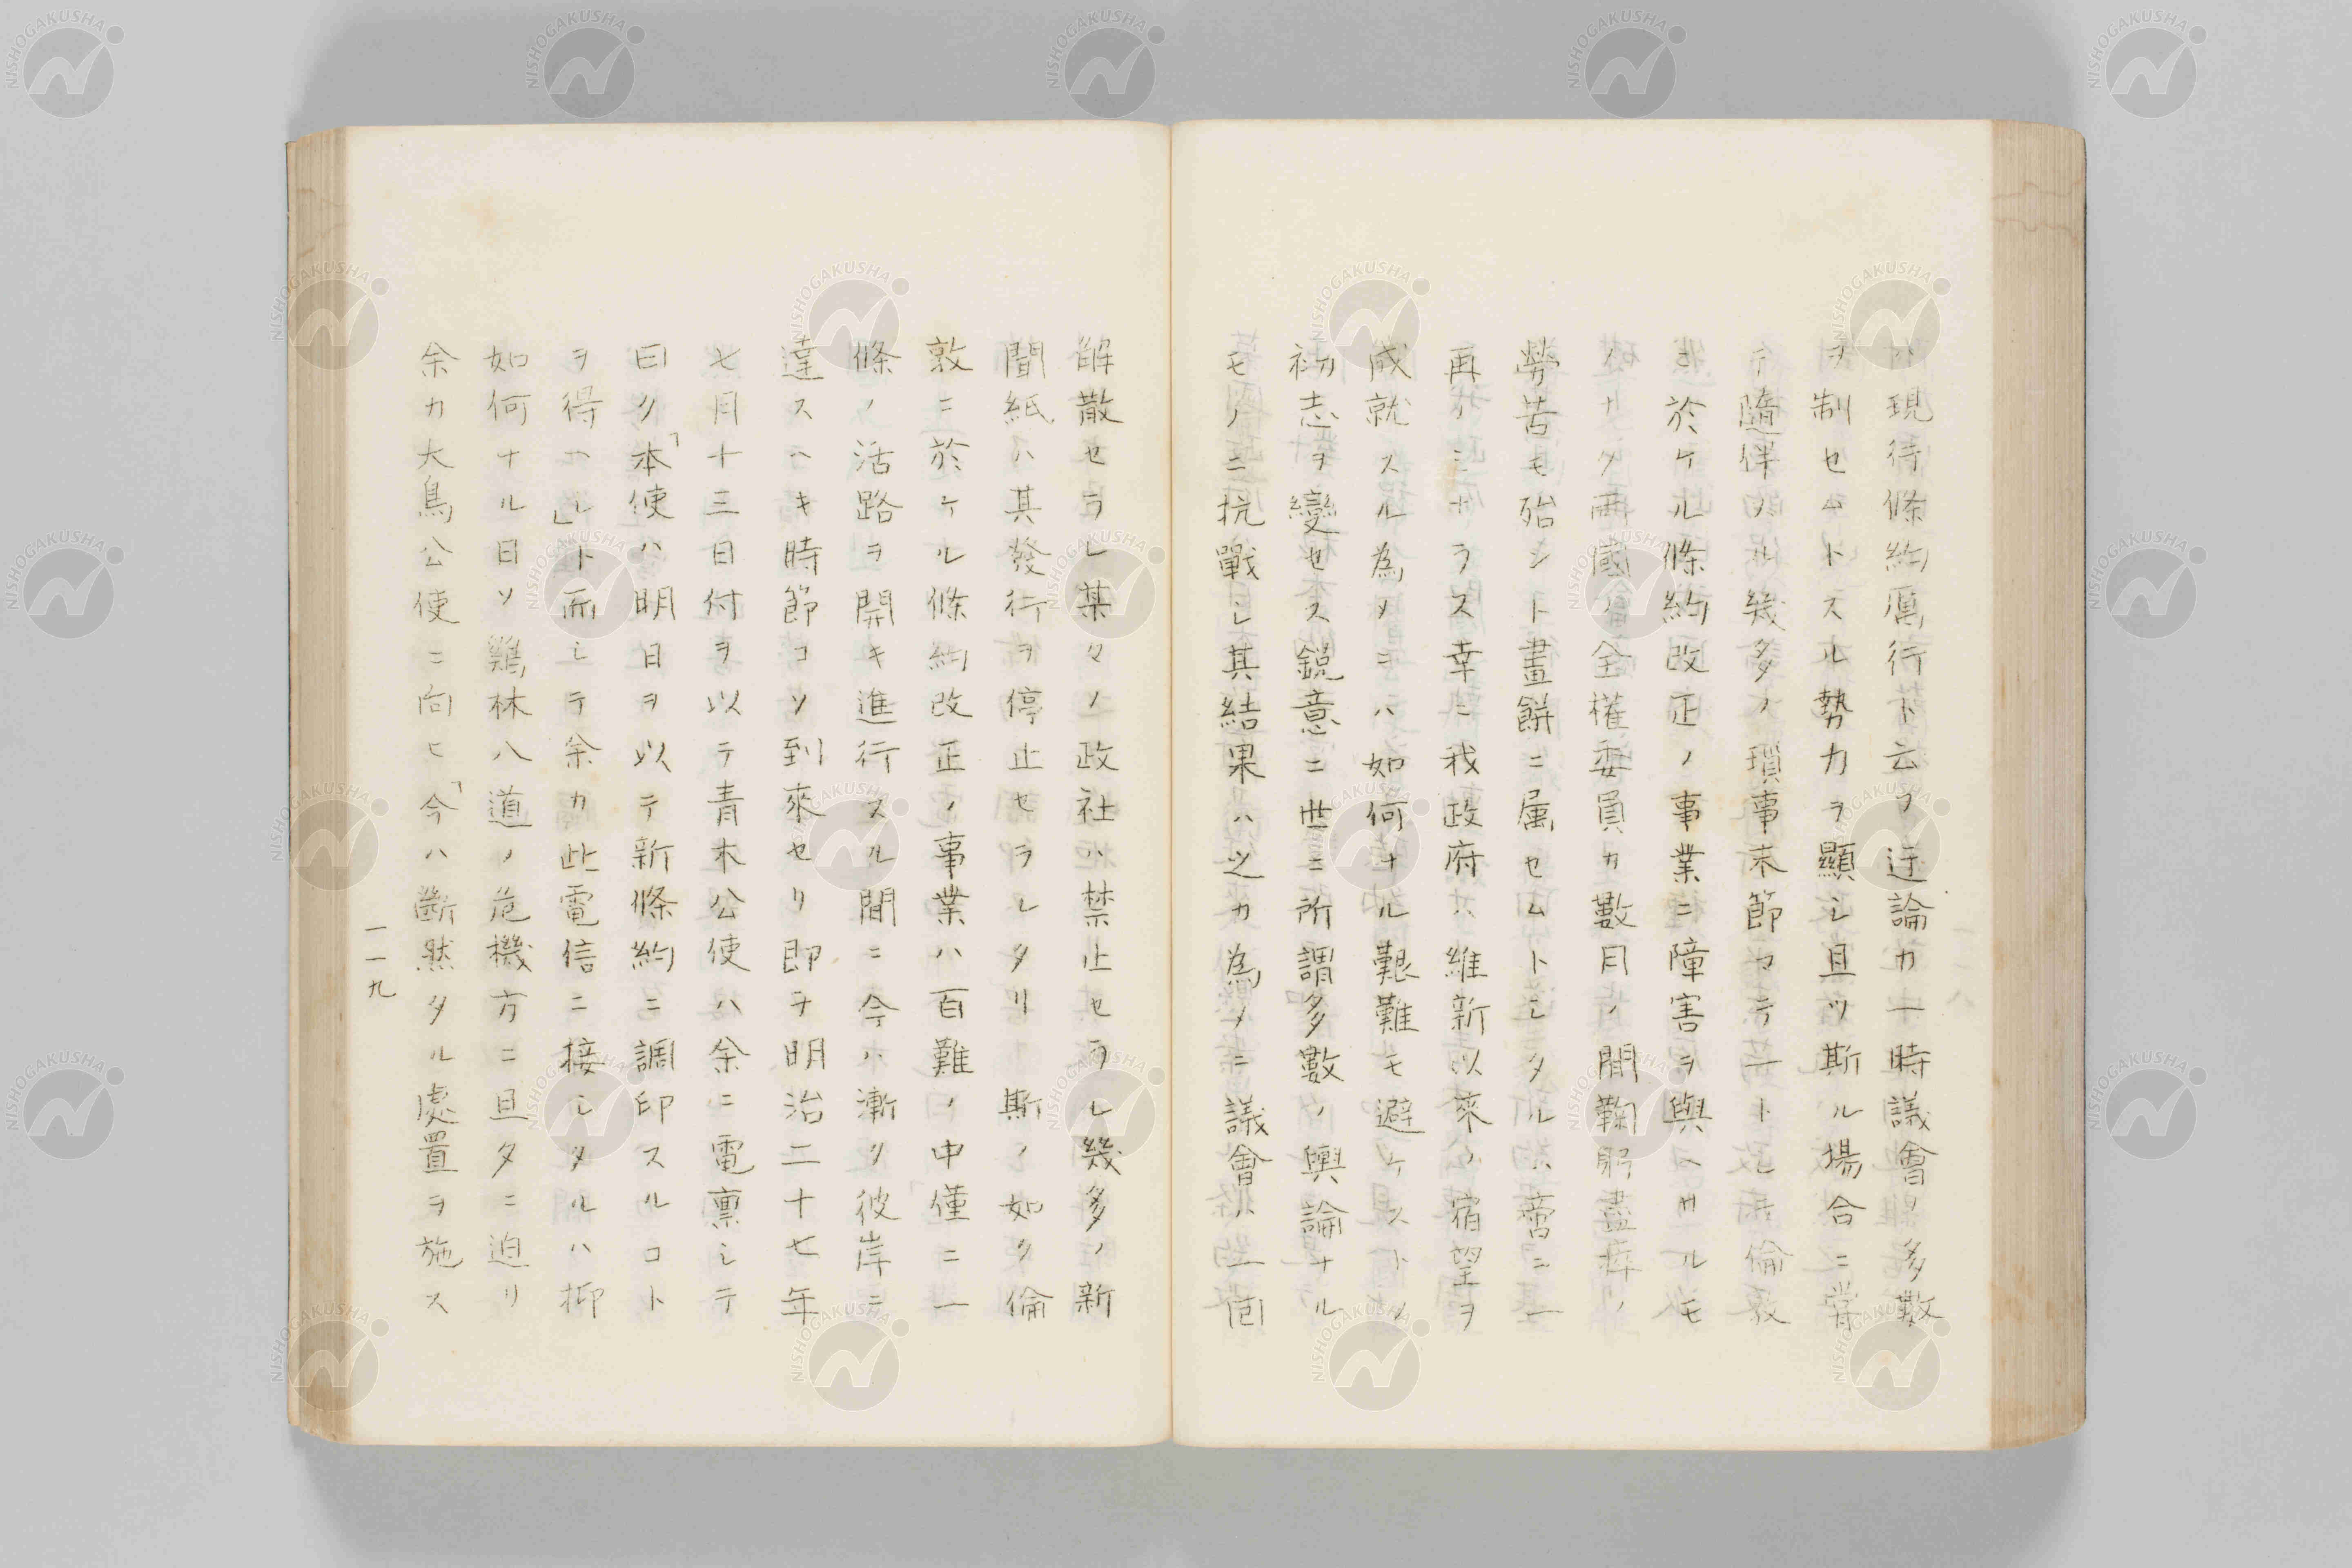 ル現待條約厲行ト云フ迂論カ一時議會ノ多數
ヲ制セムトスル勢力ヲ顯シ且ツ斯ル場合ニ常
テ隨伴スル幾多ノ瑣事末節マテ一トシテ倫敦
ニ於ケル條約改正ノ事業ニ障害ヲ與ヘサルモ
ノナク兩國ノ全權委員カ數月ノ間鞠躬盡瘁ノ
勞苦モ殆ント畫餅ニ属セムトシタルハ啻ニ一
再ノミナラス幸ニ我政府ハ維新以來ノ宿望ヲ
成就スル為メニハ如何ナル艱難モ避ケストノ
初志ヲ變セス鋭意ニ世ニ所謂多數ノ輿論ナル
モノニ抗戰シ其結果ハ之カ為メニ議會ハ一囘
解散セラレ某々ノ政社ハ禁止セラレ幾多ノ新
聞紙ハ其發行ヲ停止セラレタリ斯ノ如ク倫
敦ニ於ケル條約改正ノ事業ハ百難ノ中僅ニ一
條ノ活路ヲ開キ進行スル間ニ今ハ漸ク彼岸ニ
達スヘキ時節コソ到來セリ即チ明治二十七年
七月十三日付ヲ以テ青木公使ハ余ニ電稟シテ
曰ク「本使ハ明日ヲ以テ新條約ニ調印スルコト
ヲ得ヘシ」ト而シテ余カ此電信ニ接シタルハ抑
如何ナル日ソ鷄林八道ノ危機方ニ旦タニ迫リ
余カ大鳥公使ニ向ヒ「今ハ斷然タル處置ヲ施ス
一一九
NISHOGAKUSHA